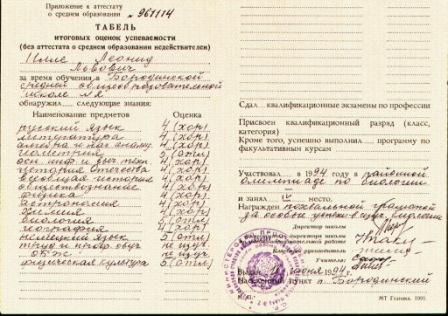 Приложение к аттестату
о среднем образовании № 961114
ТАБЕЛЬ
итоговых оценок успеваемости
(без аттестата о среднем образовании недействителен)
Леонид
Львович
за время обучения в Бородинской
средней общеобразовательной
школе №2
обнаружил следующие знания:
Наименование предметов Оценка
русский язык 4 (хор)
литература 4 (хор)
алгебра и нач. анализа 4 (хор)
геометрия 5 (отл)
осн. инф. и выч. техн. 4 (хор)
история Отечества 4 (хор)
всеобщая история 4 (хор)
обществознание 4 (хор)
физика 4 (хор)
астрономия 4 (хор)
химия 4 (хор)
биология 5 (отл)
география 4 (хор)
немецкий язык 5 (отл)
ОБЖ
физическая культура 5 (отл)
Сдал квалификационные экзамены по профессии
Присвоен квалификационный разряд (класс,
категория)
Кроме того, успешно выполнил программу по
факультативным курсам
Участвовал в 1994 году в районной
олимпиаде по биологии
и занял место.
Награжден похвальной грамотой
за особые успехи в
Директор школы
Классный руководитель
Выдан июня 1994 г.
Населенный пункт г. Бородинский
МТ Гознака. 1993.